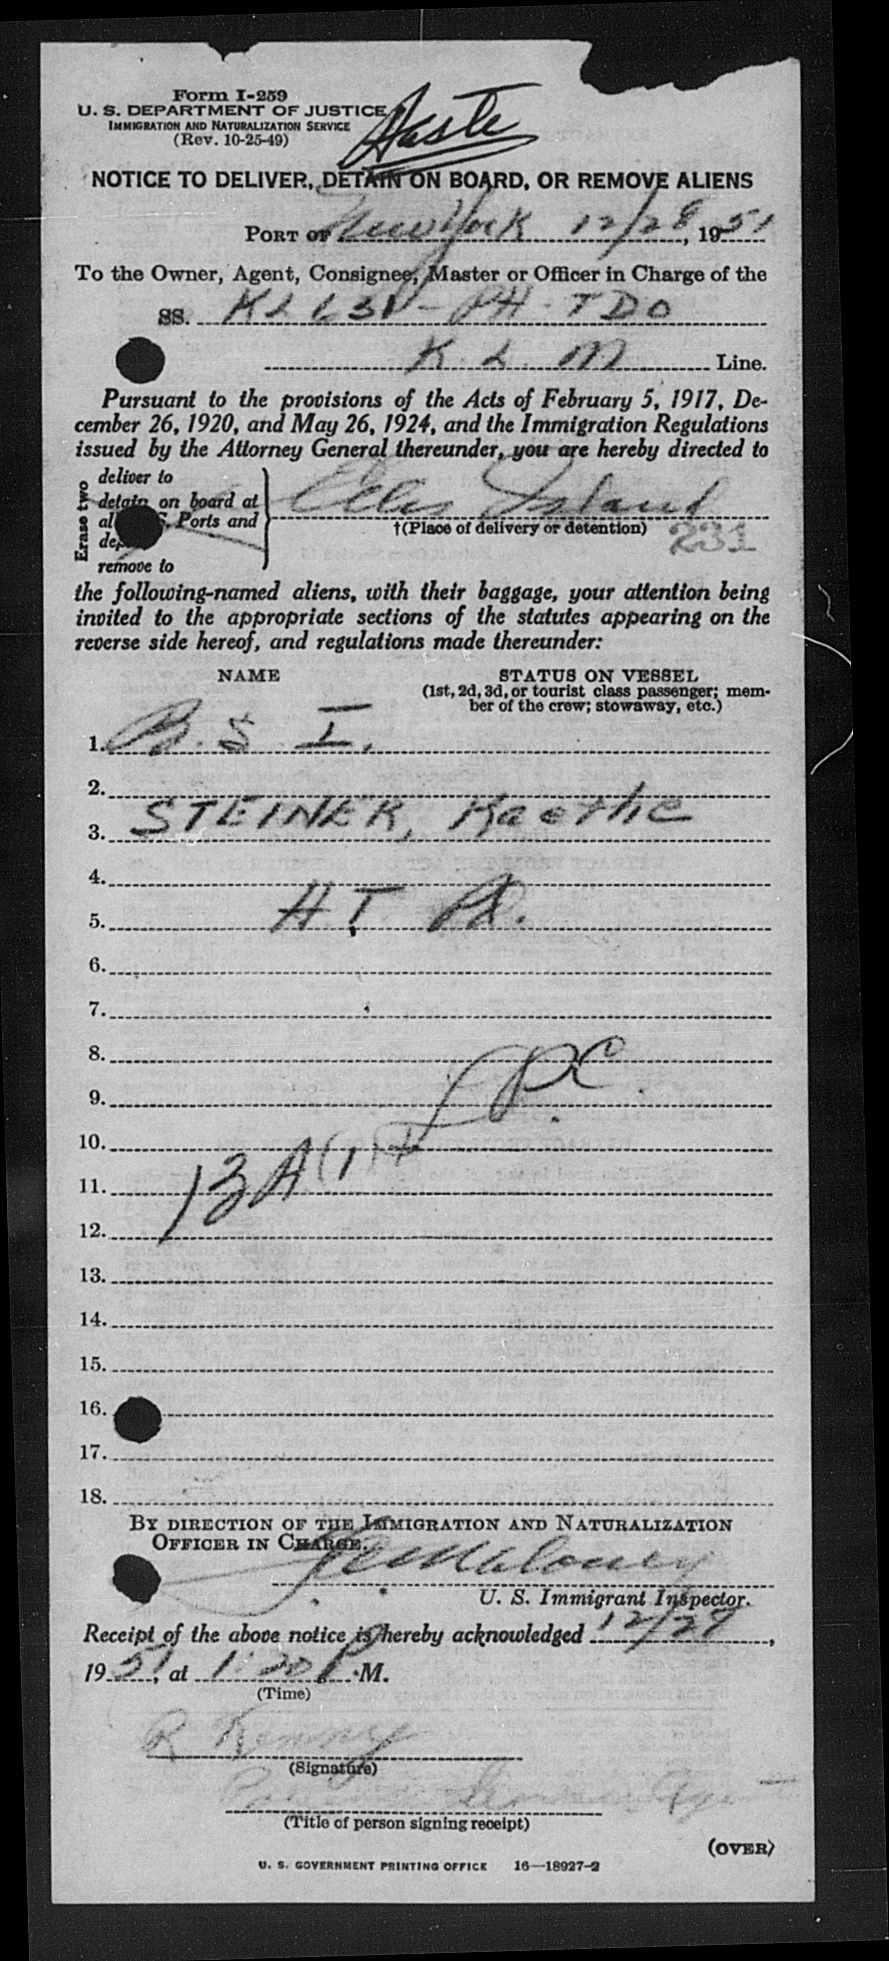 Form I-259
U. S. DEPARTMENT OF JUSTICE
IMMIGRATION AND NATURALIZATION SERVICE
(Rev. 10-25-49)
Haste
NOTICE TO DELIVER, DETAIN ON BOARD, OR REMOVE ALIENS
PORT OF New York 12/28, 1951
To the Owner, Agent, Consignee, Master or Officer in Charge of the
SS. KL631 - PH-TDO
K. L. M. Line.
Pursuant to the provisions of the Acts of February 5, 1917, De-
cember 26, 1920, and May 26, 1924, and the Immigration Regulations
issued by the Attorney General thereunder, you are hereby directed to
Erase two
deliver to
detain on board at
Ports and
remove to
Ellis Island
†(Place of delivery or detention)
231
the following-named aliens, with their baggage, your attention being
invited to the appropriate sections of the statutes appearing on the
reverse side hereof, and regulations made thereunder:
NAME STATUS ON VESSEL
(1st, 2d, 3d, or tourist class passenger; mem-
ber of the crew; stowaway, etc.)
1. B. S. I.
2.
3. STEINER, Kaethe
4.
5. H T
6.
7.
8. PC
9.
10.
11. 13A(1) +
12.
13.
14.
15.
16.
17.
18.
BY DIRECTION OF THE IMMIGRATION AND NATURALIZATION
OFFICER IN CHARGE.
Maloney
U. S. Immigrant Inspector.
Receipt of the above notice is hereby acknowledged 12/28,
1951, at 1:20 P.M.
(Time)
R Kenny
(Signature)
Agent
(Title of person signing receipt)
(OVER)
U. S. GOVERNMENT PRINTING OFFICE 16—18927-2